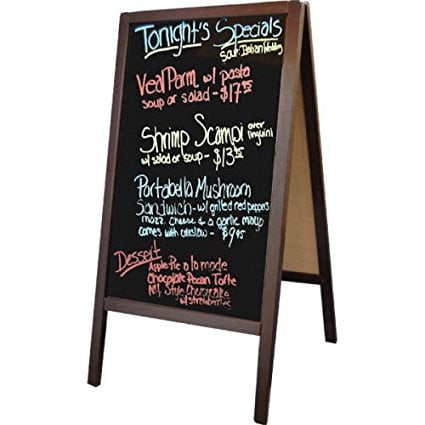 Tonight's Specials
Soup: Italian Wedding
Veal Parm w/ pasta
soup or salad - $17.95
Shrimp Scampi over
linguini
w/ salad or soup - $13.95
Portabella Mushroom
Sandwich - w/ grilled red peppers
mozz. Cheese & a garlic mayo
comes with coleslaw - $9.95
Dessert
Apple Pie a la mode
Chocolate Pecan Torte
N.Y. Style Cheesecake
w/ strawberries